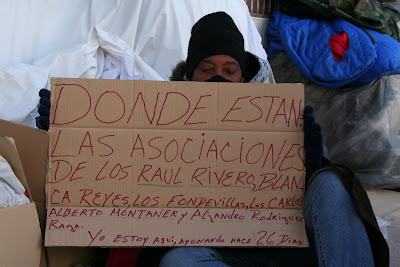 DONDE ESTAN
LAS ASOCIACIONES
DE LOS RAUL RIVERO, BLAN
CA REYES, LOS FONDEVILLAS, LOS CARLOS
ALBERTO MONTANER Y ALJANDRO RODRIGUEZ
RAYA.
YO ESTOY AQUI, AYUNANDO HACE 26 DIAS